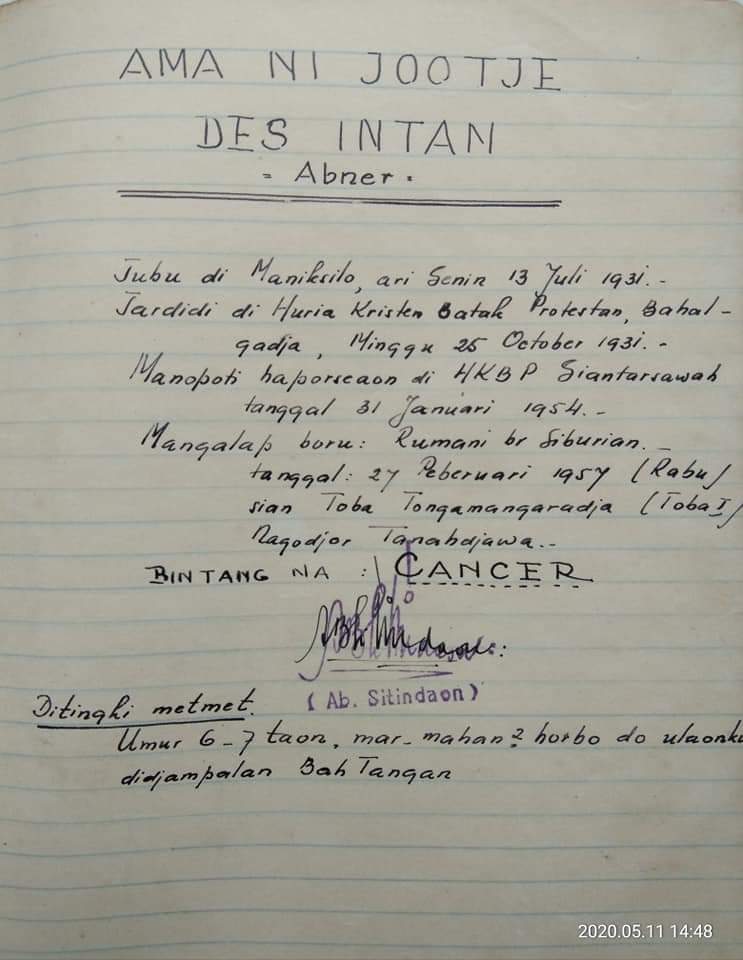 AMA NI JOOTJE
DES INTAN
= Abner =
Tubu di Maniksilo, ari Senin 13 Juli 1931.-
Tardidi di Huria Kristen Batak Protestan, Bahal-
gadja, Minggu 25 October 1931.-
Manopoti haporseaon di HKBP Siantarsawah
tanggal 31 Januari 1954.-
Mangalap boru: Rumani br Siburian.
tanggal: 27 Pebruari 1957 (Rabu)
sian Toba Tongamangaradja (Toba I)
Nagodjor Tanahdjawa..-
BINTANG NA : CANCER
(Ab. Sitindaon)
Ditingki metmet.
Umur 6-7 taon, mar-mahan2 horbo do ulaonku
didjampalan Bah Tangan
2020.05.11 14:48